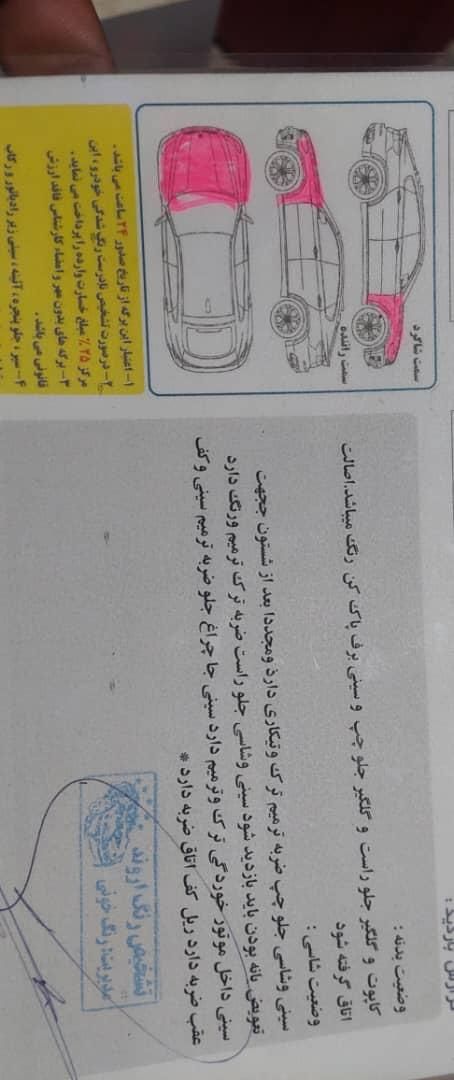 وضعیت بدنه :
کاپوت و گلگیر جلو راست و گلگیر جلو چپ و سینی برف پاک کن رنگ میباشد.اصالت
اتاق گرفته شود
وضعیت شاسی :
سینی وشاسی جلو چپ ضربه ترمیم ترک وتیکاری دارد ومجددا بعد از شستون ججهت
تعویض یانه بودن باید بازدید شود سینی وشاسی جلو راست ضربه ترک ترمیم ورنگ دارد
سینی داخل موتور خوردگی ترک وترمیم دارد سینی جا چراغ جلو ضربه ترمیم سینی وکف
عقب ضربه دارد ریل کف اتاق ضربه دارد *
تشخیص رنگ اروند
مدیریت:
سمت شاگرد
سمت راننده
۱- اعتبار این برگه از تاریخ صدور ۲۴ ساعت می باشد.
۲- درصورت تشخیص نادرست رنگ شدگی خودرو ، این
مرکز ۲۵٪ مبلغ خسارت وارده را پرداخت می نماید.
۳- برگه های بدون مهر و امضاء کارشناس فاقد ارزش
قانونی می باشد.
۴- سپر ، جلو پنجره ، آئینه ، سینی زیر رادیاتور و رکاب